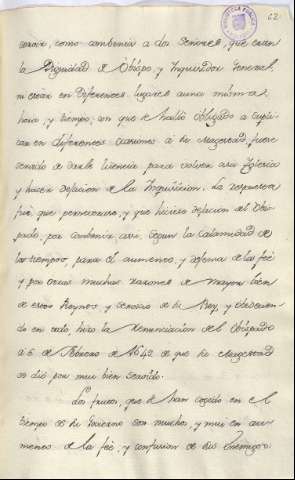 62
servir, como combenia a dos Señores, que eran
la Dignidad de Obispo, y Inquisidor General,
ni estar en diferentes lugares a una misma
hora, y tiempo; con que se halló obligado a suplicar
en diferentes ocasiones á su Magestad, fuese
servido de darle licencia para volver a su Iglesia
y hacer dejacion de la Inquisicion. La respuesta
fué, que perseverase, y que hiciese dejacion del Obispado,
por combenir, assi, segun la calamidad de
los tiempos, para el aumento, y defensa de la fee
y por otras muchas razones de mayor bien
de estos Reynos, y servicio de su Rey, y obedeciendo
en todo, hizo la renunciacion del Obispado
á 6 de Febrero de 1642 de que su Magestad
se dió por muy bien servido.
Los frutos, que se han cogido en el
tiempo de su Govierno son muchos, y mui en aumento
de la fé, y confusion de sus Enemigos.